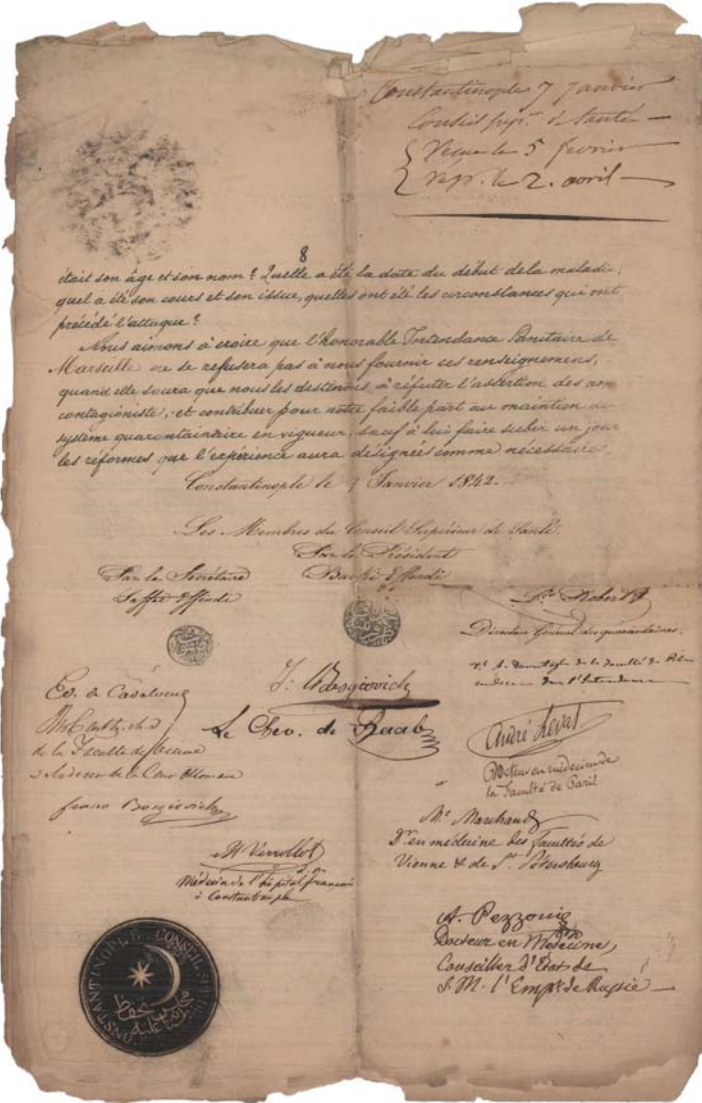 Constantinople 7 Janvier
Conseil supr. de Santé
Reçue le 5 fevrier
rep. le 2. avril
8
était son âge et son nom? Quelle a été la date du début de la maladie,
quel a été son cours et son issue, quelles ont été les circonstances qui ont
précédé l'attaque?
Nous aimons à croire que l'honorable Intendance Sanitaire de
Marseille ne se refusera pas à nous fournir ces renseignemens,
quand elle saura que nous les destinons à réfuter l'assertion des
contagioniste, et contribuer pour notre faible part au maintien du
système quarantainaire en vigueur, sauf à lui faire subir un jour
les réformes que l'expérience aura désignées comme nécessaires
Constantinople le 7 Janvier 1842.
Les Membres du Conseil Supérieur de Santé.
Par le Président
Par le Secrétaire
Effendi
Saffet Effendi
Dr. Robert
Directeur Général des quarantaines.
de la faculté de
médecine
l'Intendance
Ev. de Casolveuz
J: Bosgiovich
Le Chev. de Raab
de la Faculté de
médecin de la Cour Ottomane
André Leval
Docteur en médecine de
la Faculté de Paris
Bosgiovich
Mc. Marchand
Dr. en médecine des facultés de
Vienne & de St. Pétersbourg
Verrollot
Médecin de l'hôpital français
à Constantinople
A. Pezzoni
Docteur en Médecine,
Conseiller d'Etat de
S. M. l'Empr. de Russie
CONSTANTINOPLE CONSEIL